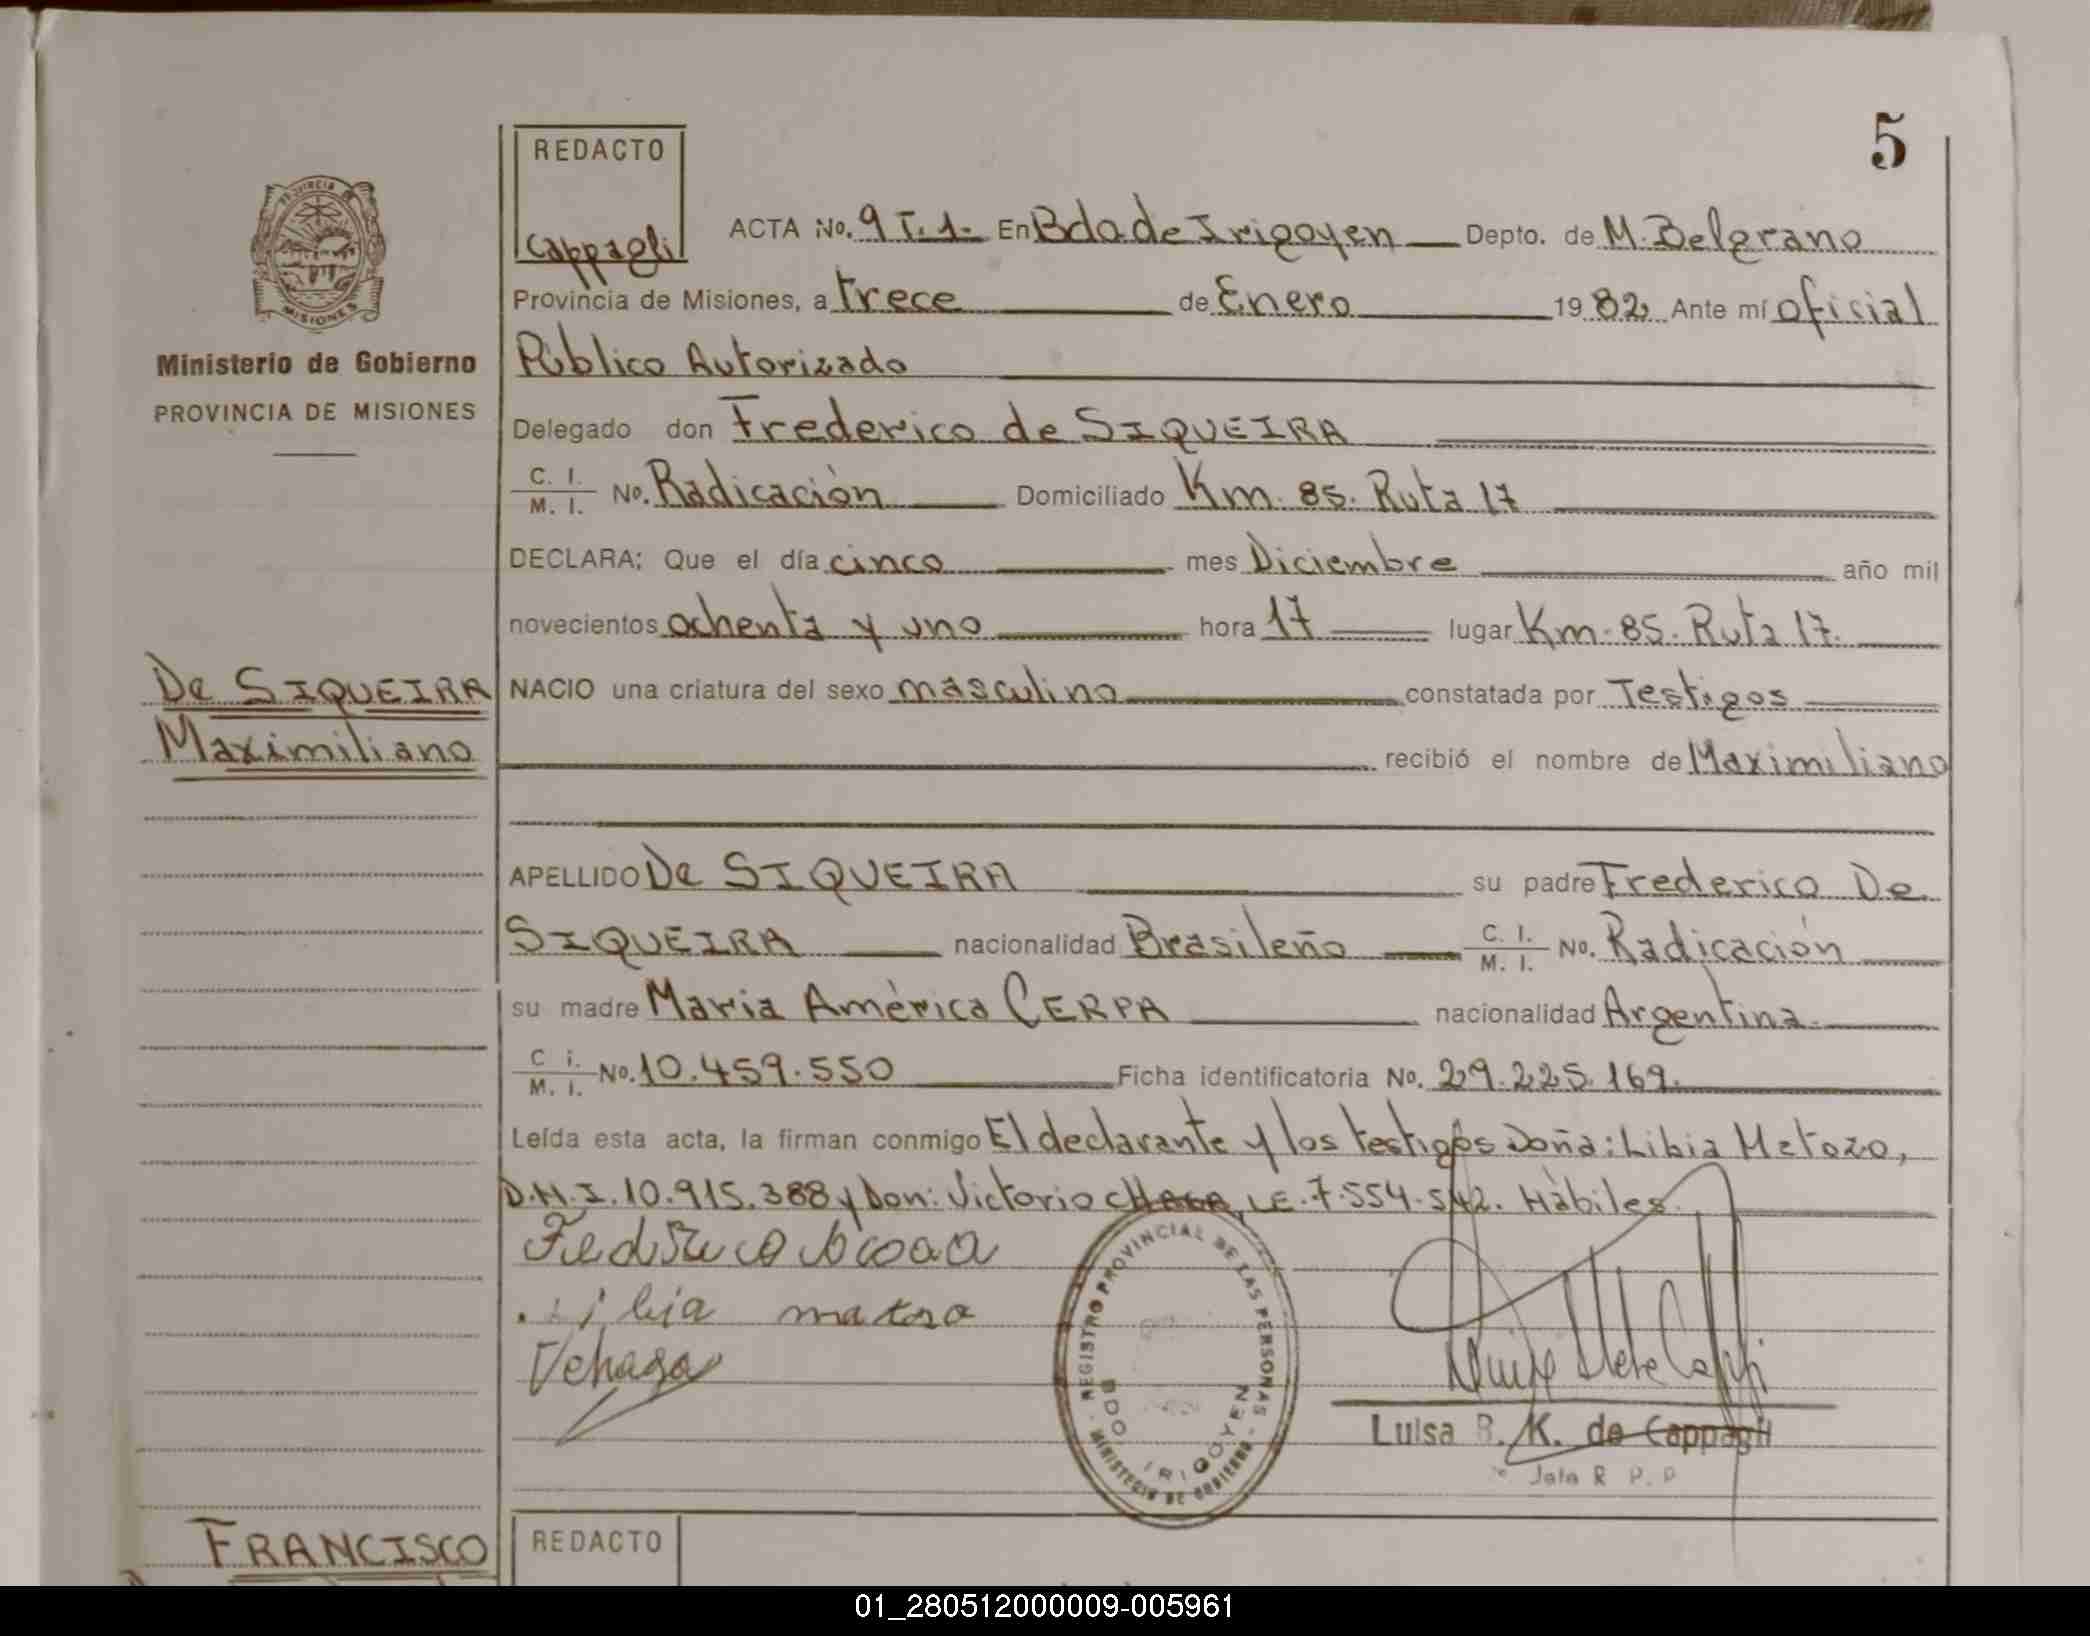 5
REDACTO
Cappagli
ACTA No. 9 T. 1. En Bdo de Irigoyen Depto. de M. Belgrano
Provincia de Misiones, a trece de Enero 1982 Ante mí oficial
Público Autorizado
Delegado don Frederico de SIQUEIRA
C. I. / M. I. No. Radicación Domiciliado Km. 85. Ruta 17
DECLARA; Que el día cinco mes Diciembre año mil
novecientos ochenta y uno hora 17 lugar Km. 85. Ruta 17.
NACIO una criatura del sexo masculino constatada por Testigos
recibió el nombre de Maximiliano
APELLIDO De SIQUEIRA su padre Frederico De
SIQUEIRA nacionalidad Brasileño C. I. / M. I. No. Radicación
su madre Maria América CERPA nacionalidad Argentina.
C i. / M. I. No. 10.459.550 Ficha identificatoria No. 29.225.169.
Leída esta acta, la firman conmigo El declarante y los testigos Doña: Libia Metozo,
D.N.I. 10.915.388 y Don: Victorio L.E. 7.554.542. Hábiles.
Libia
Luisa B. K. de Cappagli
Jefe R P. P
REGISTRO PROVINCIAL DE LAS PERSONAS
MINISTERIO DE GOBIERNO
BDO IRIGOYEN
PROVINCIA
MISIONES
Ministerio de Gobierno
PROVINCIA DE MISIONES
De SIQUEIRA
Maximiliano
FRANCISCO
REDACTO
01_280512000009-005961